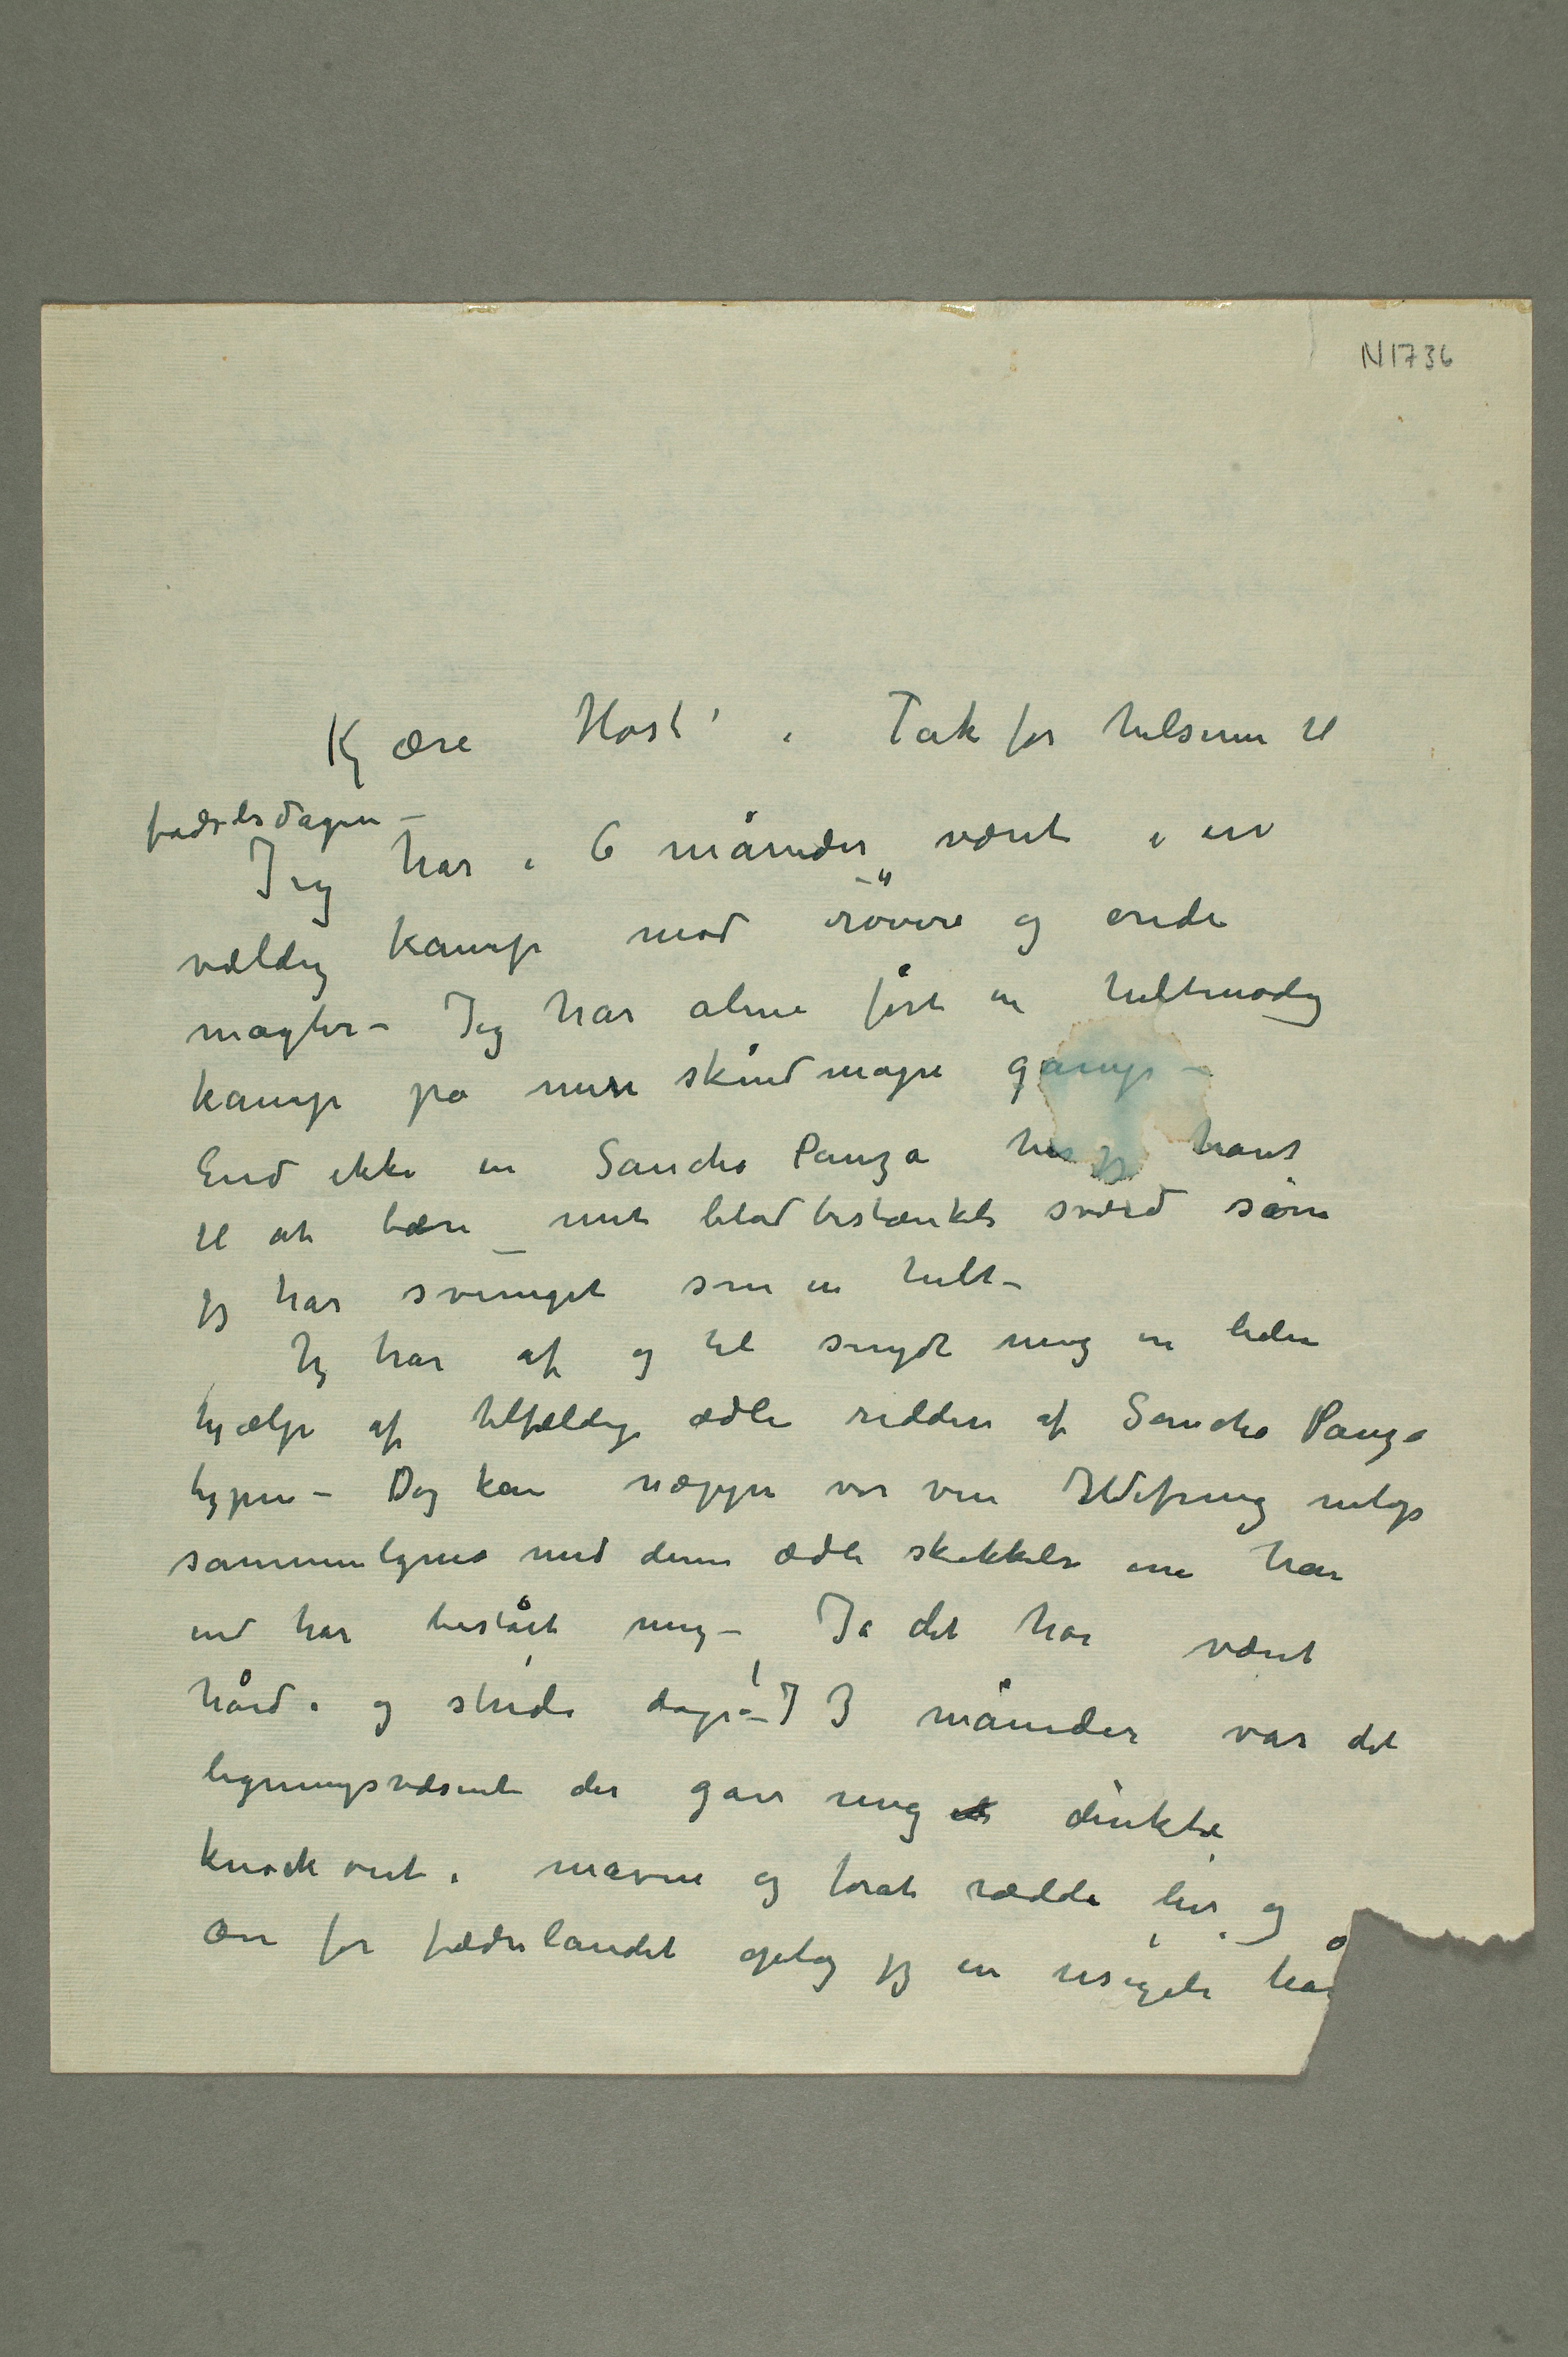 N1736
Kjære Høst! Tak for hilsenen til
fødselsdagen –
Jeg har i 6 måneder været i en
vældig kamp mod røvere og onde
magter – Jeg har alene ført en heltmodig
kamp på min skindmagre gamp –
End ikke en Sancho Panza har jeg havt
til at bære mit blodbestænkte sværd som
jeg har svinget som en helt –
Jeg har af og til snydt mig en liden
hjælp af tilfældige ædle riddere af Sancho Panza
typen – Dog kan næppe vor ven netop
sammenlignes med denne ædle skikkelse om han
end har bistået mig – Ja det har været
hårde og stride dage! – I 3 måneder var det
ligningsvæsenet der gav mig direkte
knock out i maven og forat rædde liv og
ære for fædrelandet optog jeg en usigelig hå